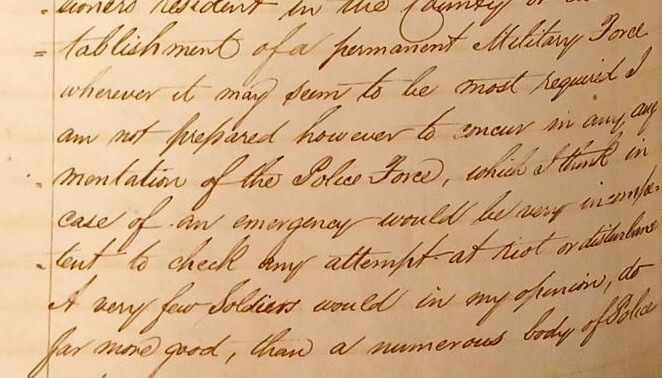 =sioners resident in the County or
=tablishment of a permanent Military Force
wherever it may seem to be most required I
am not prepared however to concur in any aug
=mentation of the Police Force, which I think in
case of an emergency would be very incompe-
=tent to check any attempt at riot or disturbance
A very few Soldiers would in my opinion, do
far more good, than a numerous body of Police